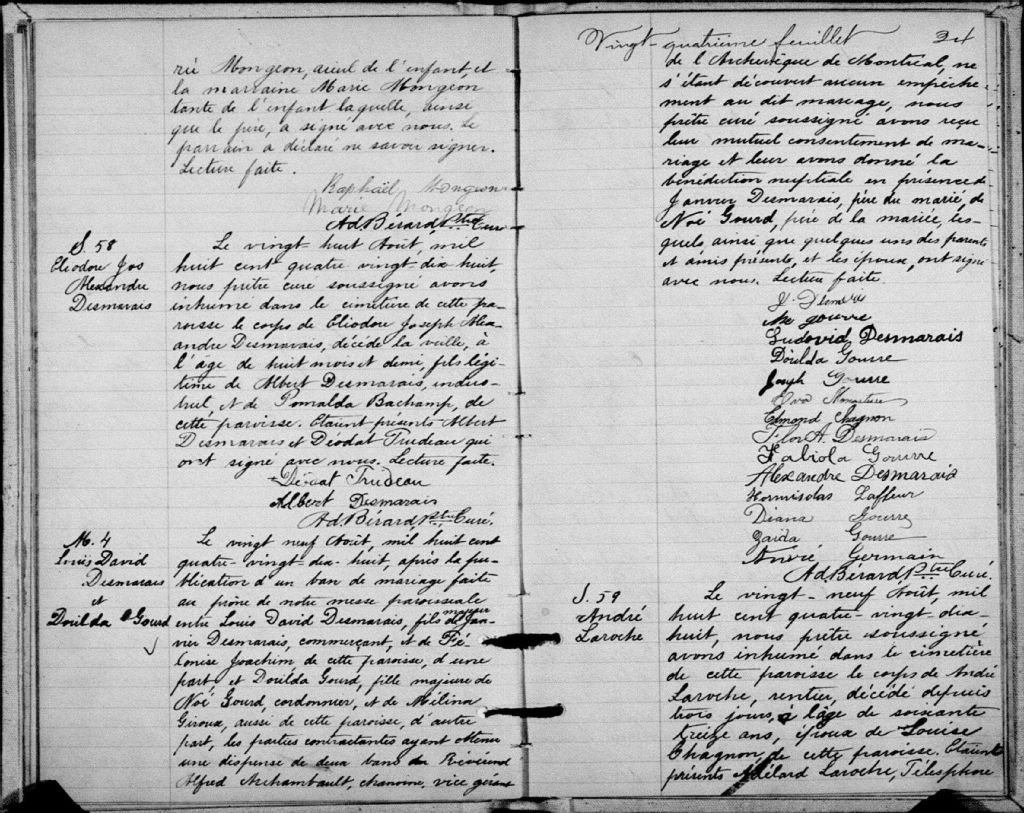 rie Mongeon, aieul de l'enfant, et
la marraine Marie Mongeon
tante de l'enfant laquelle, ainsi
que le père, a signé avec nous. Le
parrain a déclaré ne savoir signer.
Lecture faite.
Raphaël Mongeon
Marie Mongeon
Ad Bérard Ptre Curé
S. 58
Eliodore Jos
Alexandre
Desmarais
Le vingt huit Août, mil
huit cent quatre vingt-dix huit,
nous prêtre curé soussigné avons
inhumé dans le cimetière de cette pa-
roisse le corps de Eliodore Joseph Alex-
andre Desmarais, décédé la veille, à
l'âge de huit mois et demi, fils légi-
time de Albert Desmarais, indus-
triel, et de Pomalda Bachamp, de
cette paroisse. Etaient présents Albert
Desmarais et Déodat Trudeau qui
ont signé avec nous. Lecture faite.
Déodat Trudeau
Albert Desmarais
Ad Bérard Ptre Curé.
M. 4
Louis David
Desmarais
et
Douilda Gourd
Le vingt neuf Août, mil huit cent
quatre-vingt-dix-huit, après la pu-
blication d'un ban de mariage faite
au prône de notre messe paroissiale
entre Louis David Desmarais, fils majeur de Jan-
vier Desmarais, commerçant, et de Fé-
lonise Joachim de cette paroisse, d'une
part et Douilda Gourd, fille majeure de
Noé Gourd, cordonnier, et de Mélina
Giroux, aussi de cette paroisse, d'autre
part, les parties contractantes ayant obtenu
une dispense de deux bans du Révérend
Alfred Archambault, chanoine, vice gérant
Vingt-quatrième feuillet 24
de l'Archevêque de Montréal, ne
s'étant découvert aucun empêche-
ment au dit mariage, nous
prêtre curé soussigné avons reçu
leur mutuel consentement de ma-
riage et leur avons donné la
bénédiction nuptiale en présence de
Janvier Desmarais, père du marié, de
Noé Gourd, père de la mariée, les-
quels, ainsi que quelques uns des parents
et amis présents, et les époux, ont signé
avec nous. Lecture faite.
gourre
Ludovid Desmarais
Douilda Gourre
Joseph Gourre
Edmond Chagnon
Flor A. Desmarais
Fabiola Gourre
Alexandre Desmarais
Hormisdas Laffeur
Diana Gourre
Zaida Gourre
Germain
Ad Bérard Ptre Curé.
S. 59
André
Laroche
Le vingt-neuf Août, mil
huit cent quatre-vingt-dix-
huit, nous prêtre soussigné
avons inhumé dans le cimetière
de cette paroisse le corps de André
Laroche, rentier, décédé depuis
trois jours, à l'âge de soixante
treize ans, époux de Louise
Chagnon, de cette paroisse. Etaient
présents Adélard Laroche, Télesphore